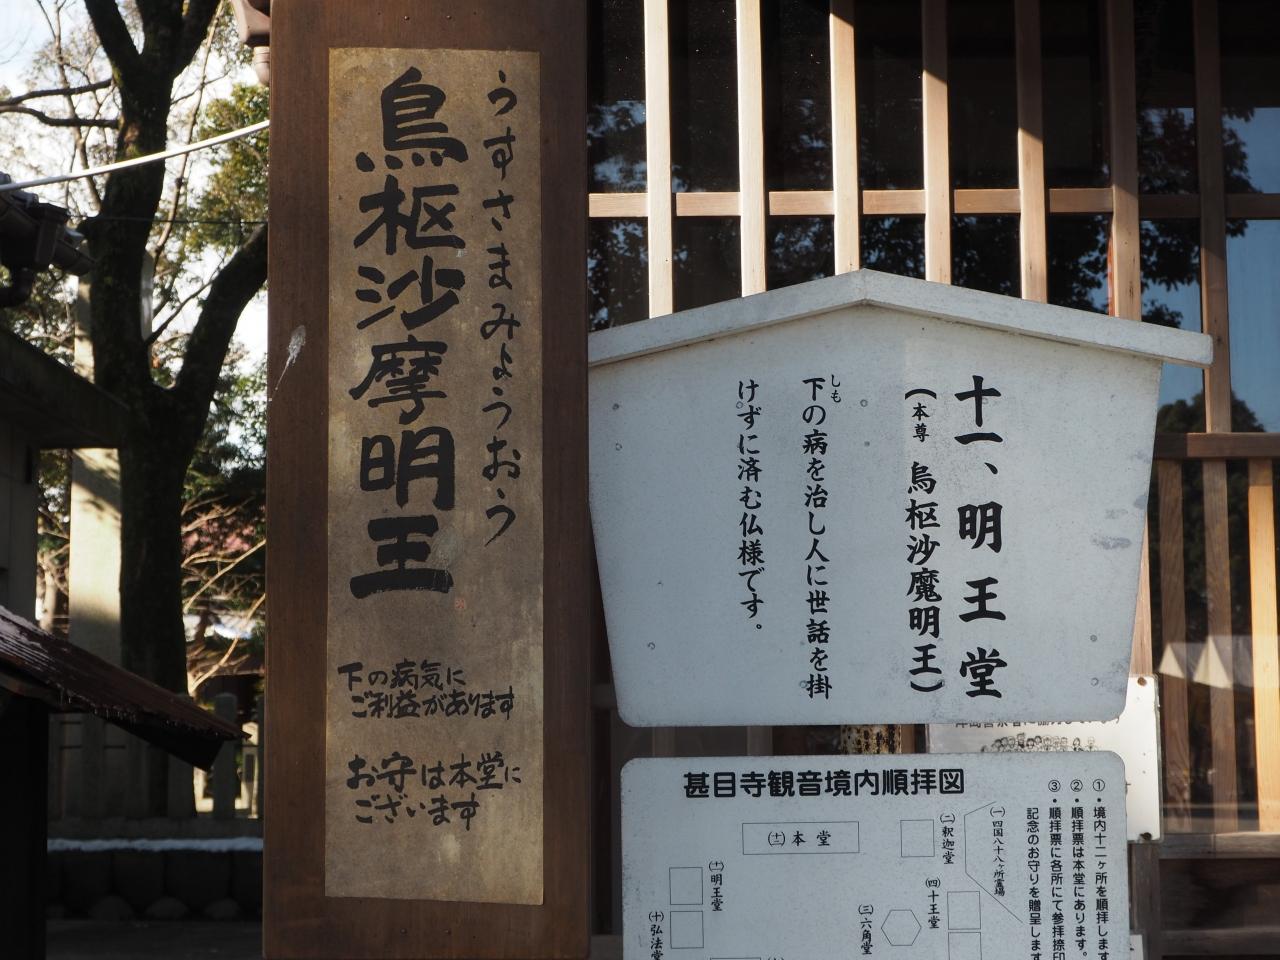 うすさまみょうおう
烏枢沙摩明王
下の病気に
ご利益があります
お守は本堂に
ございます
十一、明王堂
(本尊 烏枢沙魔明王)
下の病を治し人に世話を掛
しも
けずに済む仏様です。
甚目寺観音境内順拝図
①・境内十二ヶ所を順拝します
②・順拝票は本堂にあります。
③・順拝票に各所にて参拝捺印
記念のお守りを贈呈します
(一)四国八十八ヶ所霊場
(二)釈迦堂
(十二)本堂
(四)十王堂
(三)六角堂
(十一)明王堂
(十)弘法堂